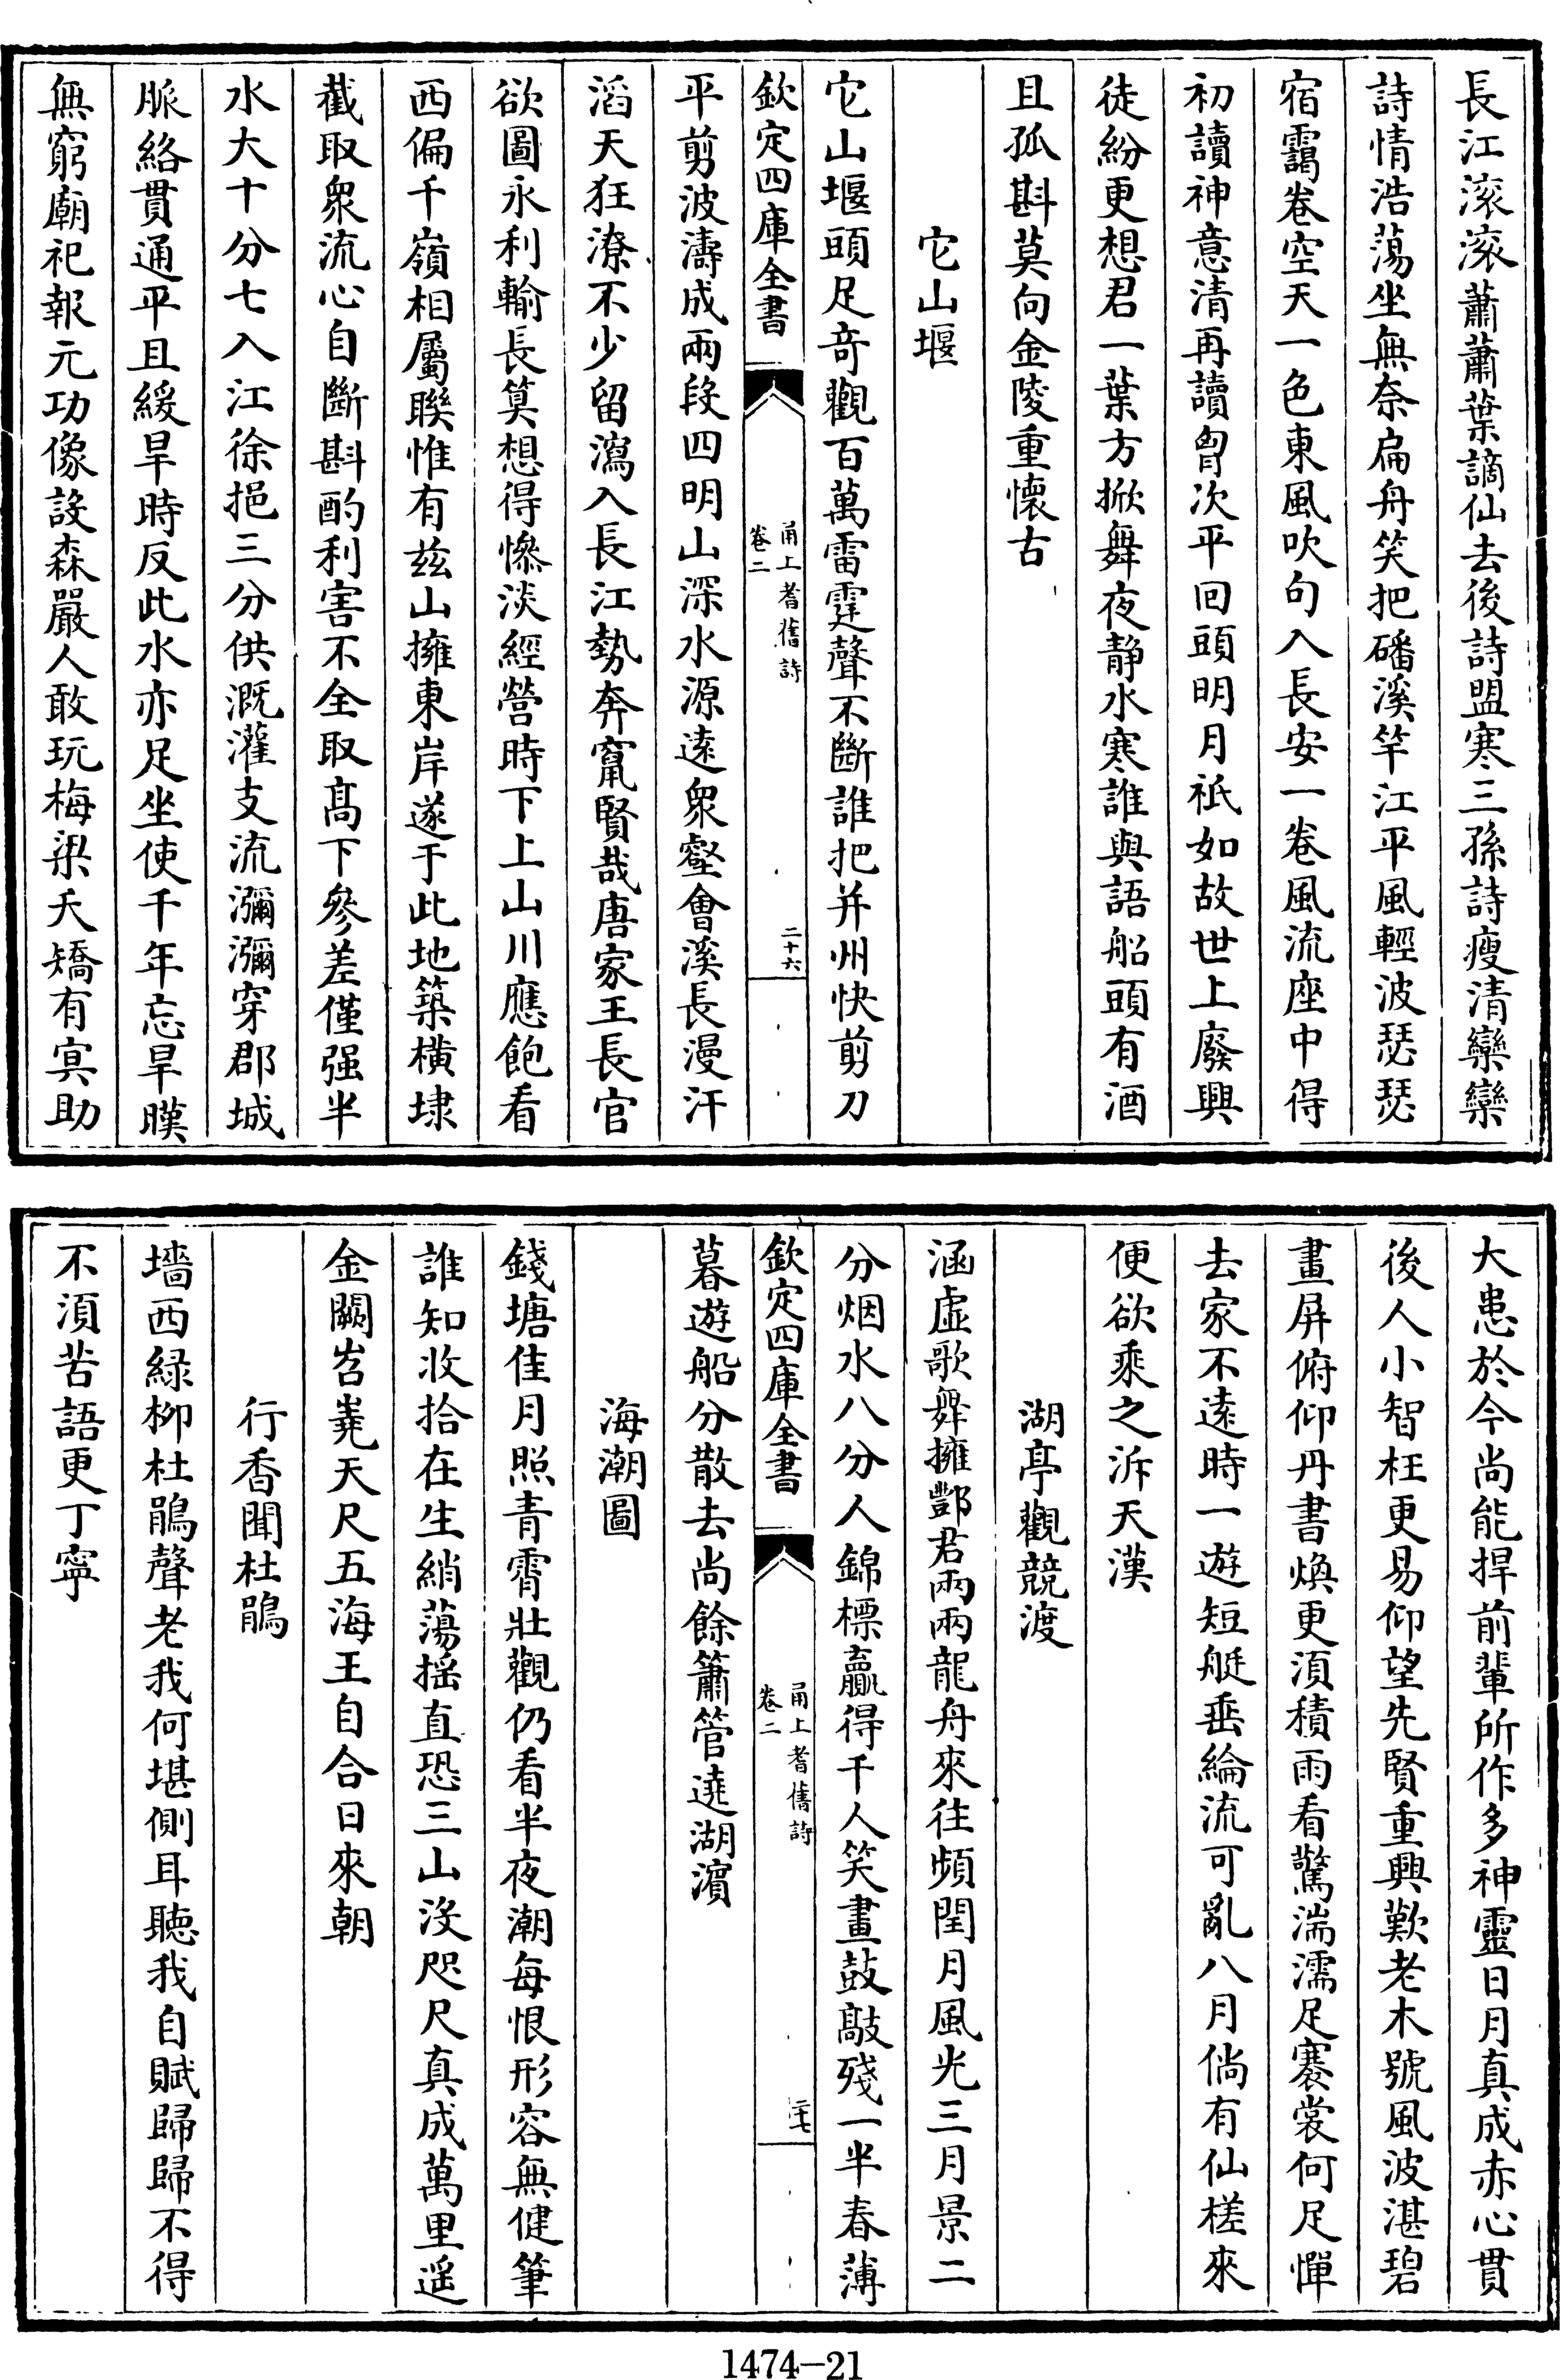 長江滚滚蕭蕭葉謫仙去後詩盟寒三孫詩瘦清欒欒
詩情浩蕩坐無奈扁舟笑把磻溪竿江平風輕波瑟瑟
宿靄卷空天一色東風吹句入長安一卷風流座中得
初讀神意清再讀胷次平回頭明月祇如故世上廢興
徒紛更想君一葉方掀舞夜静水寒誰與語船頭有酒
且孤斟莫向金陵重懷古
它山堰
它山堰頭足竒觀百萬雷霆聲不斷誰把并州快剪刀
欽定四庫全書
甬上耆舊詩
卷二
二十六
平剪波濤成兩段四明山深水源逺衆壑會溪長漫汗
滔天狂潦不少留瀉入長江勢奔竄賢哉唐家王長官
欲圖永利輸長筭想得慘淡經營時下上山川應飽看
西偏千嶺相屬聯惟有兹山擁東岸遂于此地築横埭
截取衆流心自斷斟酌利害不全取髙下參差僅强半
水大十分七入江徐挹三分供溉灌支流瀰瀰穿郡城
脈絡貫通平且緩旱時反此水亦足坐使千年忘旱暵
無窮廟祀報元功像設森嚴人敢玩梅梁夭矯有㝠助
大患於今尚能捍前輩所作多神靈日月真成赤心貫
後人小智枉更易仰望先賢重興歎老木號風波湛碧
畫屏俯仰丹書煥更湏積雨看驚湍濡足褰裳何足憚
去家不逺時一遊短艇垂綸流可亂八月倘有仙槎來
便欲乘之泝天漢
湖亭觀競渡
涵虛歌舞擁酆君兩兩龍舟來往頻閏月風光三月景二
分烟水八分人錦標贏得千人笑畫鼓敲殘一半春薄
欽定四庫全書
甬上耆舊詩
卷二
二十七
暮遊船分散去尚餘簫管遶湖濵
海潮圖
錢塘佳月照青霄壯觀仍看半夜潮每恨形容無健筆
誰知收拾在生綃蕩揺直恐三山沒咫尺真成萬里遥
金闕岧嶤天尺五海王自合日來朝
行香聞杜鵑
墻西緑栁杜鵑聲老我何堪側耳聴我自賦歸歸不得
不湏苦語更丁寧
1474—21